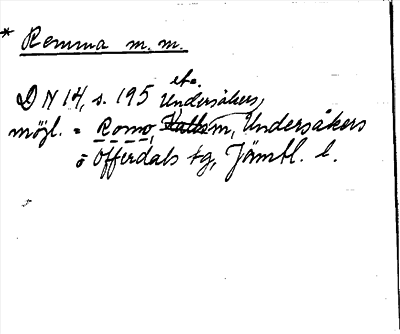 * Remma m. m.
etc.
DN 14, s. 195 Undersåkers,
mögl. = Romo, m, Undersåkers
o Offerdals tg, Jämtl. l.